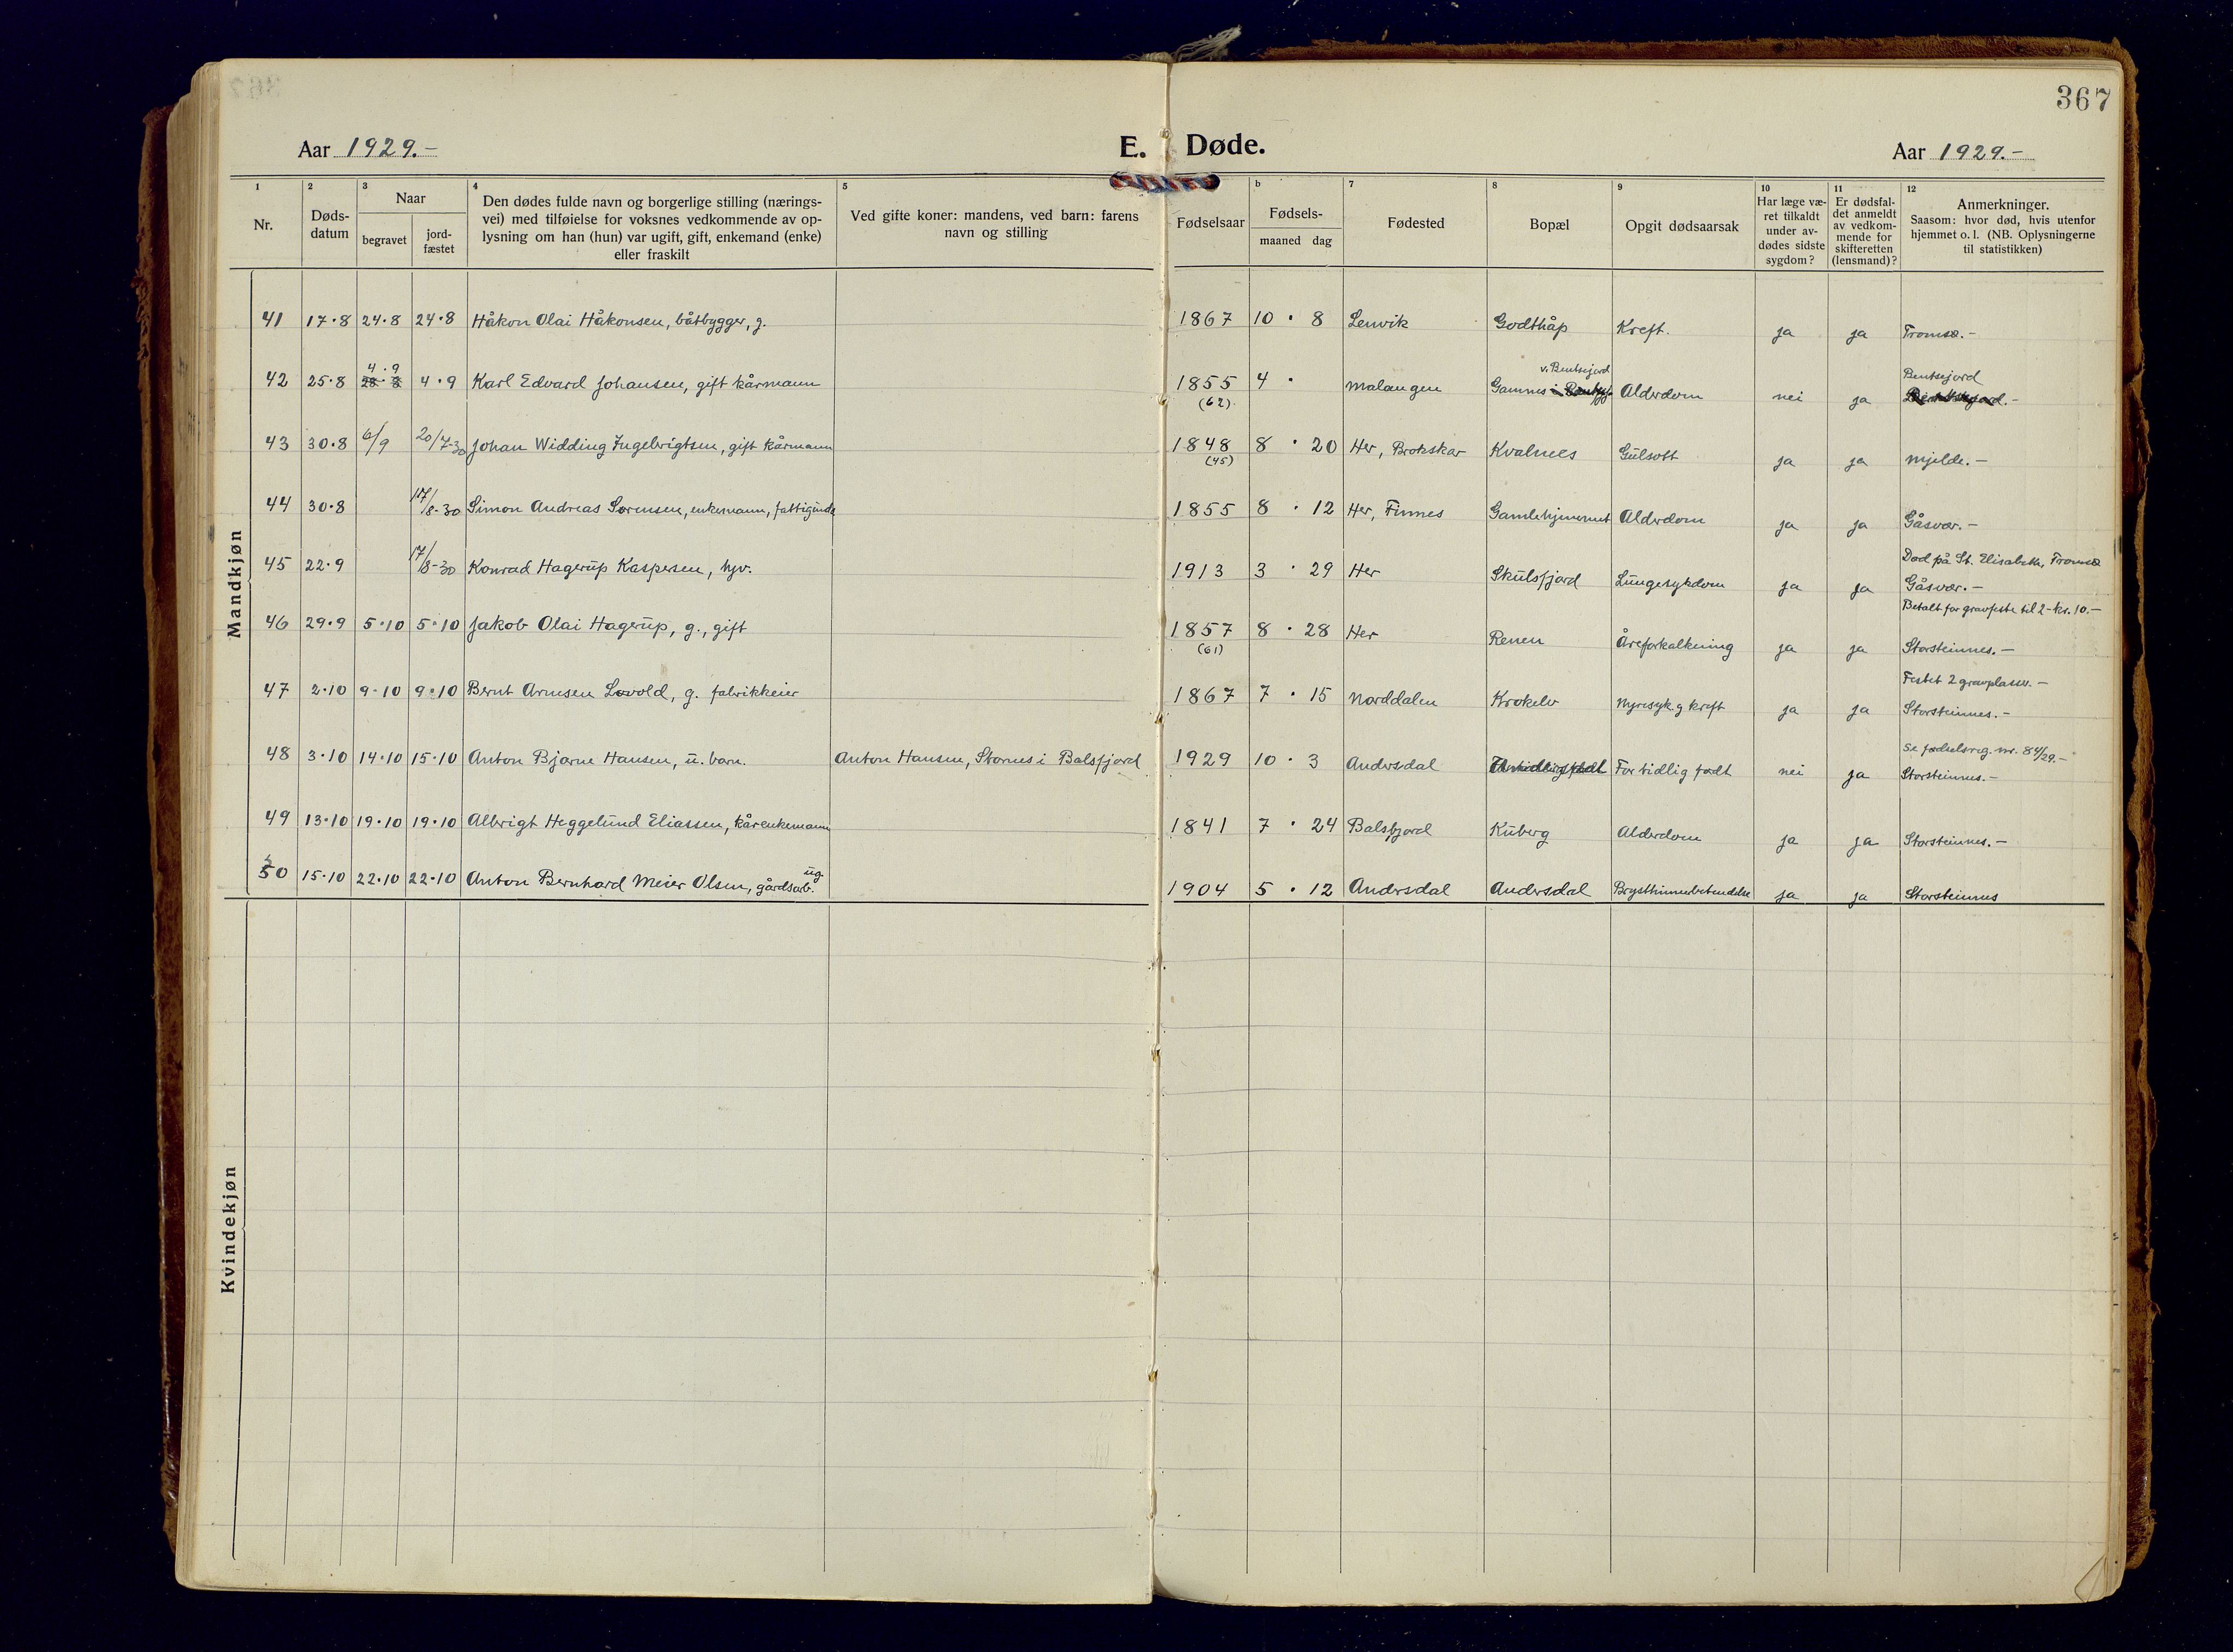 367
Aar 1929.- E. Døde. Aar 1929.-
1 Nr.
2 Døds-datum
3 Naar
begravet
jord-fæstet
4 Den dødes fulde navn og borgerlige stilling (nærings-
vei) med tilføielse for voksnes vedkommende av op-
lysning om han (hun) var ugift, gift, enkemand (enke)
eller fraskilt
5 Ved gifte koner: mandens, ved barn: farens
navn og stilling
Fødselsaar
b Fødsels-
maaned dag
7 Fødested
8 Bopæl
9 Opgit dødsaarsak
10 Har læge væ-
ret tilkaldt
under av-
dødes sidste
sygdom?
11 Er dødsfal-
det anmeldt
av vedkom-
mende for
skifteretten
(lensmand)?
12 Anmerkninger.
Saasom: hvor død, hvis utenfor
hjemmet o. l. (NB. Oplysningerne
til statistikken)
Mandkjøn
41 17·8 24·8 24·8 Håkon Olai Håkonsen, båtbygger, g. 1867 10 · 8 Lenvik Godthåp Kreft. ja ja Tromsø.-
4·9 v. Bentsjord Bentsejord
42 25·8 28·8 4·9 Karl Edvard Johansen, gift kårmann 1855 4 · Malangen Gamnes Alderdom nei ja
(62)
43 30·8 6/9 20/7-30 Johan Widding Ingebrigtsen, gift kårmann 1848 8 · 20 Her, Brokskar Kvalnes Gulsott ja ja Mjelde.-
(45)
44 30·8 17/8-30 Simon Andreas Sørensen, enkemann, fattigund. 1855 8 · 12 Her, Finnes Gamlehjemmet Alderdom ja ja Gåsvær.-
Død på St. Elisabeth, Tromsø
45 22·9 17/8-30 Konrad Hagerup Kaspersen, hjv. 1913 3 · 29 Her Skulsfjord Lungesykdom ja ja Gåsvær.-
Betalt for gravfeste til 2- kr. 10.-
46 29·9 5·10 5·10 Jakob Olai Hagerup, g., gift 1857 8 · 28 Her Renen Åreforkalkning ja ja Storsteinnes.-
(61)
Festet 2 gravplasser.-
47 2·10 9·10 9·10 Bernt Arnesen Løvold, g. fabrikkeier 1867 7 · 15 Norddalen Krokelv Nyresyk. g kreft ja ja Storsteinnes.-
Se fødselsreg. nr. 84/29.-
48 3·10 14·10 15·10 Anton Bjarne Hansen, u. barn. Anton Hansen, Stornes i Balsfjord 1929 10 · 3 Andersdal For tidlig født nei ja Storsteinnes.-
49 13·10 19·10 19·10 Albrigt Heggelund Eliassen, kårenkemann 1841 7 · 24 Balsfjord Kuberg Alderdom ja ja Storsteinnes.-
ug.
50 15·10 22·10 22·10 Anton Bernhard Meier Olsen, gårdsarb. 1904 5 · 12 Andersdal Andersdal Brysthinnebetendelse ja ja Storsteinnes
Kvindekjøn